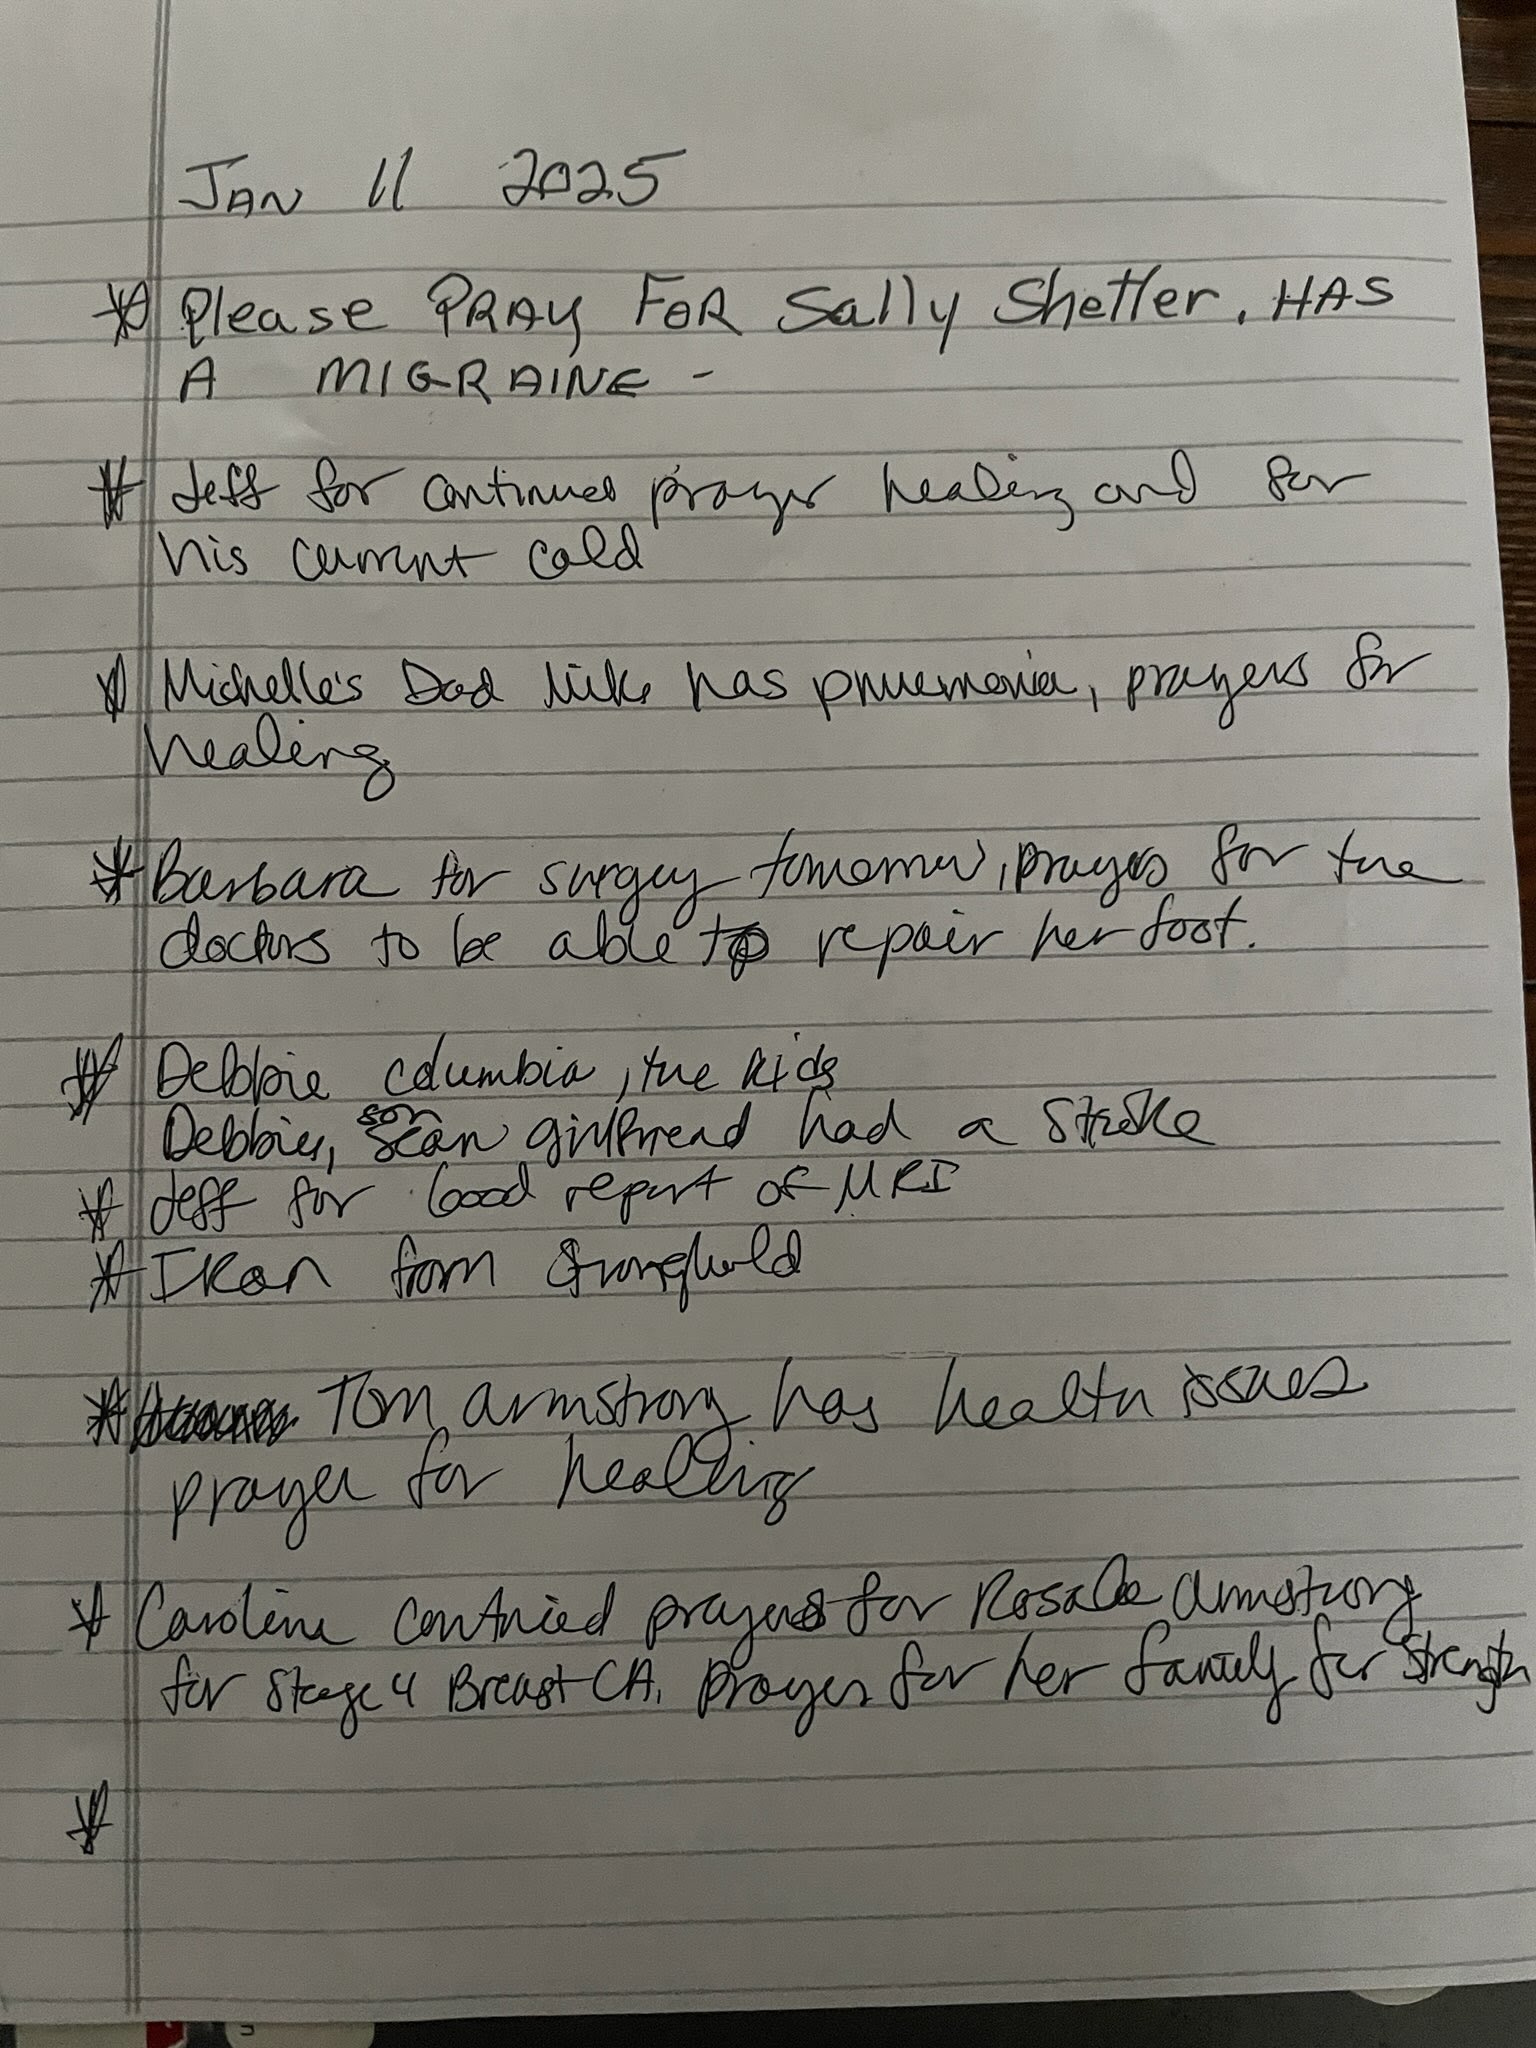 JAN 11 2025
* Please PRAY FOR Sally Shetler. HAS
A MIGRAINE -
* Jeff for continued prayer healing and for
his current cold
* Michelle's Dad Mike has pnuemonia, prayers for
healing
* Barbara for surgery tomorrow, prayers for the
doctors to be able to repair her foot.
* Debbie Columbia, the kids
Debbies, son Sean girlfriend had a stroke
* Jeff for Good report of MRI
* from Stronghold
* Tom Armstrong has health issues
prayer for healing
* Caroline contnied prayers for Armstrong
for stage 4 Breast CA. prayer for her family for strength
*